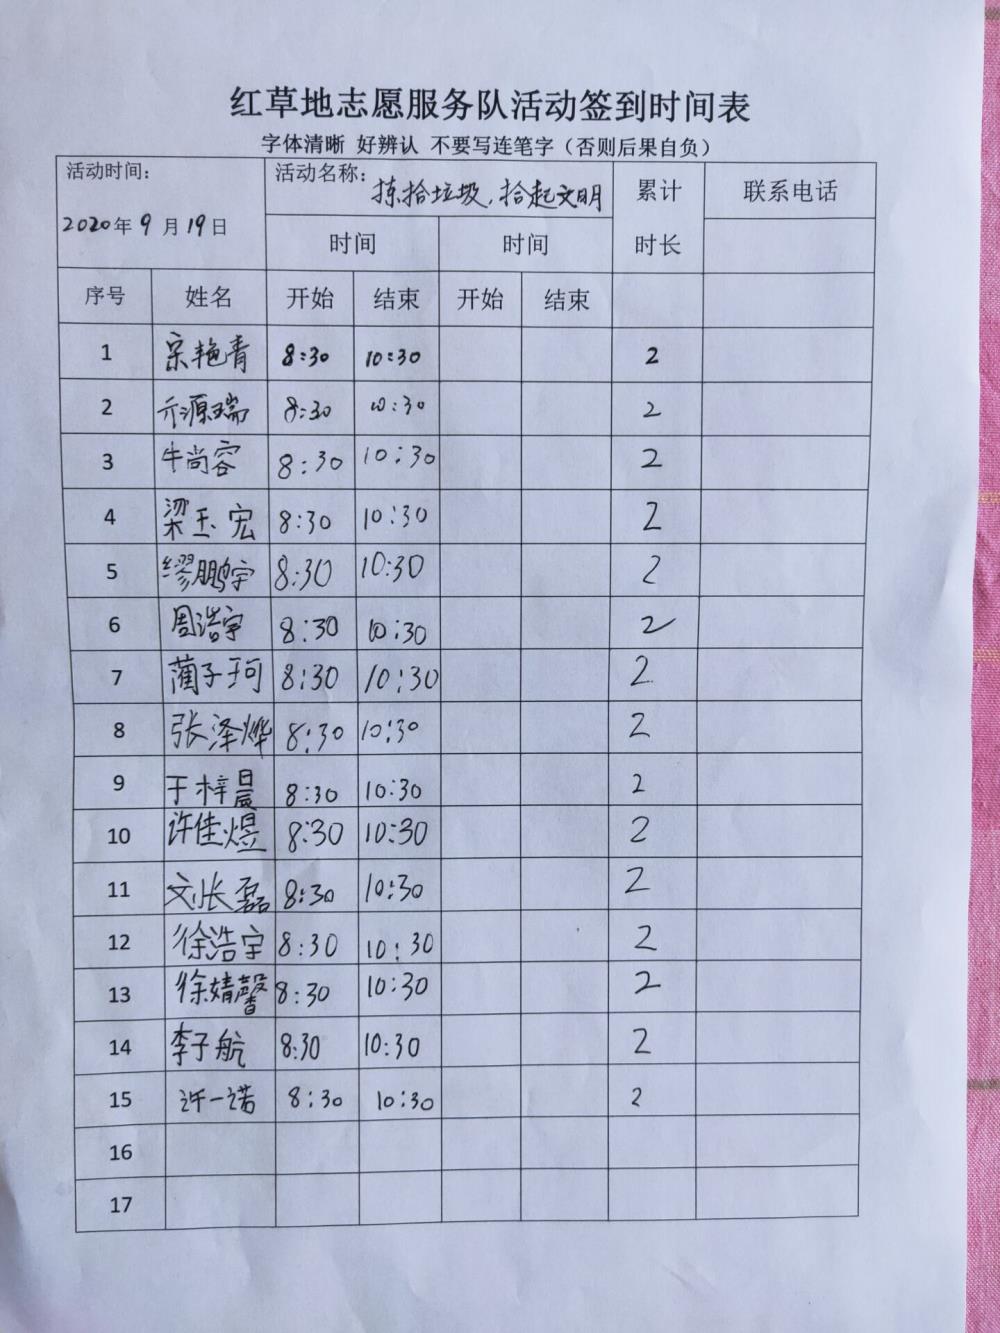 红草地志愿服务队活动签到时间表
字体清晰 好辨认 不要写连笔字（否则后果自负）
活动时间： 活动名称：拣拾垃圾，拾起文明 累计 联系电话
2020年9月19日 时间 时间 时长
序号 姓名 开始 结束 开始 结束
1 宋艳青 8:30 10:30 2
2 亓源瑞 8:30 10:30 2
3 牛尚容 8:30 10:30 2
4 梁玉宏 8:30 10:30 2
5 缪鹏宇 8:30 10:30 2
6 周浩宇 8:30 10:30 2
7 蔺子珂 8:30 10:30 2
8 张泽烨 8:30 10:30 2
9 于梓晨 8:30 10:30 2
10 许佳煜 8:30 10:30 2
11 刘张磊 8:30 10:30 2
12 徐浩宇 8:30 10:30 2
13 徐婧馨 8:30 10:30 2
14 李子航 8:30 10:30 2
15 许一诺 8:30 10:30 2
16
17